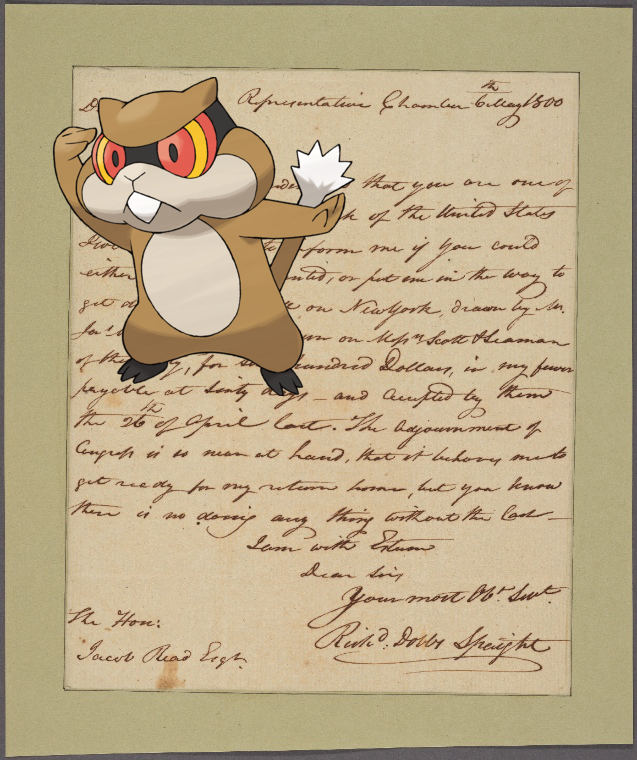 D Representative Chamber 6th May 1800
that you are one of
k of the United States
form me if you could
either nted, or put me in the way to
get d on New York, drawn by Mr.
Jas. wn on Messrs Scott & Seaman
of the y, for s hundred Dollars, in my favor
payable at sixty days – and accepted by them
the 26th of April last. The adjournment of
Congress is so near at hand, that it behoves me to
get ready for my return home, but you know
there is no doing any thing without the Cash –
I am with Esteem
Dear Sir,
Your most Obt. Servt.
Richd. Dobbs Spaight
The Hon:
Jacob Read Esqr.